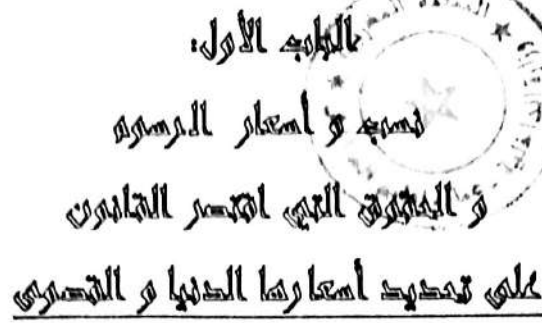 الباب الأول:
نسب و أسعار الرسوم
و الحقوق التي اقتصر القانون
على تحديد أسعارها الدنيا و القصوى